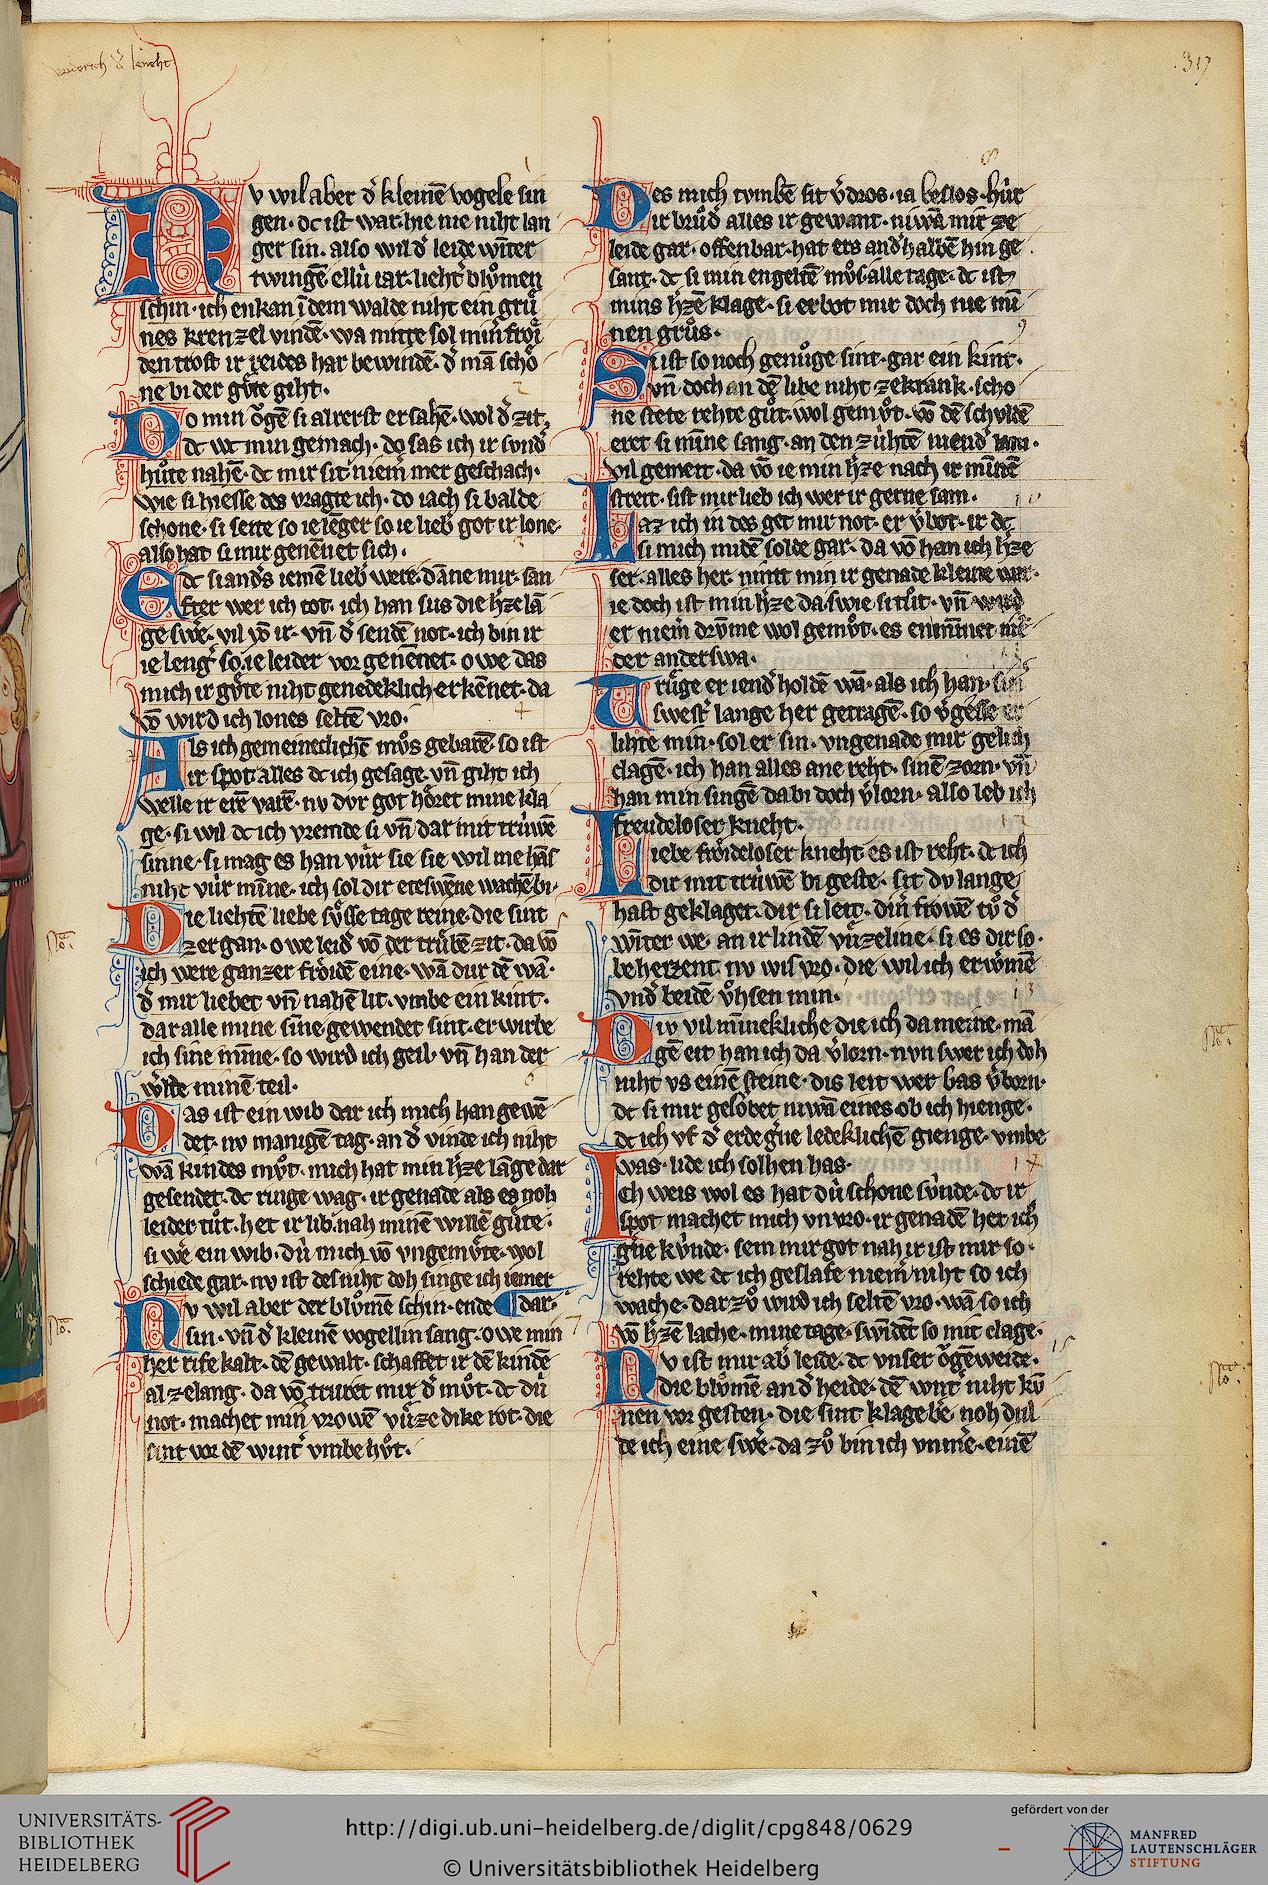 317
v wil aber d᾽ kleinē vogele sin
gen· dc ist war· hie nie niht lan
ger sin· also wil d᾽ leide wīter
twingē ellú iar· lieht᾽ blůmen
schin· ich enkan ī dem walde niht ein grů
nes krenzel vindē· wa mitte sol mī froͤi
den trost ir reides har bewindē· d᾽ mā schoͤ
ne bi der guͤte giht·
Do min oͮgē si alrerst ersahē· wol d᾽ zit
dc wc min gemach· do sas ich ir sond᾽
hůte nahē· dc mir sit niem᾽ mer geschach·
wie si hiesse des vragte ich· do iach si balde
schone· si seite so ie lēger so ie lieb᾽ got ir lone·
also hat si mir genēnet sich·
E dc si and᾽s iemē lieb᾽ were· dāne mir· san
fter wer ich tot· ich han sus die h᾽ze lā
ge swe᾽· vil vō ir· vn̄ d᾽ sendē not· ich bin ir
ie leng᾽ so ie leider vor genēnet· owe das
mich ir guͤte niht genedeklich erkēnet· da
vō wird ich lones seltē vro·
Als ich gemeinetlichē můs gebarē· so ist
ir spot alles dc ich gesage· vn̄ giht ich
welle ir erē varē· nv dvr got hoͤret mine kla
ge· si wil dc ich vremde si vn̄ dar mit trúwē
sinne· si mag es han vúr sie sie wil me hās
niht vúr mīne· ich sol dir eteswēne wachē bi·
Die liehtē liebe suͤsse tage reine· die sint
zergan· owe leid᾽ vō der truͤbē zit· da vō
ich were ganzer froͤidē eine· wā dur dē wā·
d᾽ mir liebet vn̄ nahē lit· vmbe ein kint·
dar alle mine sīne gewendet sint· erwirbe
ich sine mīne· so wird ich geil· vn̄ han der
w᾽lte minē teil·
Das ist ein wib dar ich mich han gewē
det· nv manigē tag· an d᾽ vinde ich niht
wā kindes můt· mich hat min h᾽ze lāge dar
gesendet· dc ringe wag· ir genade als es noh
leider tůt· het ir lib nah minē willē guͤte·
si we ein wib· dú mich vō vngemuͤte· wol
schiede gar· nv ist des niht doh singe ich iemer
dar·
Nv wil aber der blůmē schin· ende
sin· vn̄ d᾽ kleinē vogellin sang· owe min
her rife kalt· dē gewalt· schaffet ir dē kindē
al zelang· da vō truret mir d᾽ můt· dc dú
not· machet mī vrowē vúze dike rot· die
sint vor dē wint᾽ vmbehůt·
Des mich tvmbē sit v᾽dros· ia beslos· húr
ir brůd᾽ alles ir gewant· niwā mir ze
leide gar· offenbar· hat ers and᾽halbē hin ge
sant· dc si min engeltē můs alle tage· dc ist
mins h᾽zē klage· si erbot mir doch nie mī
nen grůs·
Si ist so noch genůge sint· gar ein kint·
vn̄ doch an dē libe niht ze krank· scho
ne stete rehte gůt· wol gemůt· vō dē schvldē
eret si mīne sang· an den zúhtē niend᾽
vil gemeit· da vō ie min h᾽ze nach ir mīnē
streit· sist mir lieb ich wer ir gerne sam·
Laz ich in des get mir not· er v᾽bot· ir dc
si mich midē solde gar· da vō han ich h᾽ze
ser· alles her nimt min ir genade kleine war·
ie doch ist min h᾽ze da swie si tůt· vn̄ wird
er niem᾽ drvme wol gemůt· es enmīnet nie
der anderswa·
Truͤge er iend᾽ holdē wā· als ich han· sin
swest᾽ lange her getragē· so v᾽gesse er
lihte min· sol er sin· vngenade mir gelich
clagē· ich han alles ane reht· sinē zorn· vn̄
han min singē da bi doch v᾽lorn· also leb ich
freudeloser kneht·
Liebe froͤideloser kneht es ist reht· dc ich
dir mit trúwē bi geste· sit dv lange
hast geklaget· dir si leit· dīr frowē tů d᾽
wīter we· an ir lindē vuͤzeline· si es dir so
beherzent· nv wis vro· die wil ich erw᾽mē
vnd᾽ beidē vͦhsen min·
Div vil mīnekliche die ich da meine· mā
gē eit han ich da v᾽lorn· nvn swer ich doh
niht vs einē steine· dis leit wer bas v᾽born·
dc si mir gelobet niwā eines ob ich hienge·
dc ich vf d᾽ erde g᾽ne ledeklichē gienge· vmbe
was· lide ich solhen has·
Ich weis wol es hat dú schone súnde· dc ir
spot machet mich vnvro· ir genadē het ich
g᾽ne kúnde· sem mir got nah ir ist mir so
rehte we dc ich geslafe niem᾽ niht so ich
wache· dar zů wird ich seltē vro· wā so ich
vō h᾽zē lache· mine tage· swīdēt so mit clage·
Nv ist mir ab᾽ leide· dc vnser oͮgē weide·
die blůmē an d᾽ heide· dē wint᾽ niht kū
nen vor gesten· die sint klagebe᾽· noh dul
de ich eine swe᾽· da zů bin ich vnme᾽· einē
UNIVERSITÄTS-
BIBLIOTHEK
HEIDELBERG
http://digi.ub.uni-heidelberg.de/diglit/cpg848/0629
© Universitätsbibliothek Heidelberg
gefördert von der
MANFRED
LAUTENSCHLÄGER
STIFTUNG